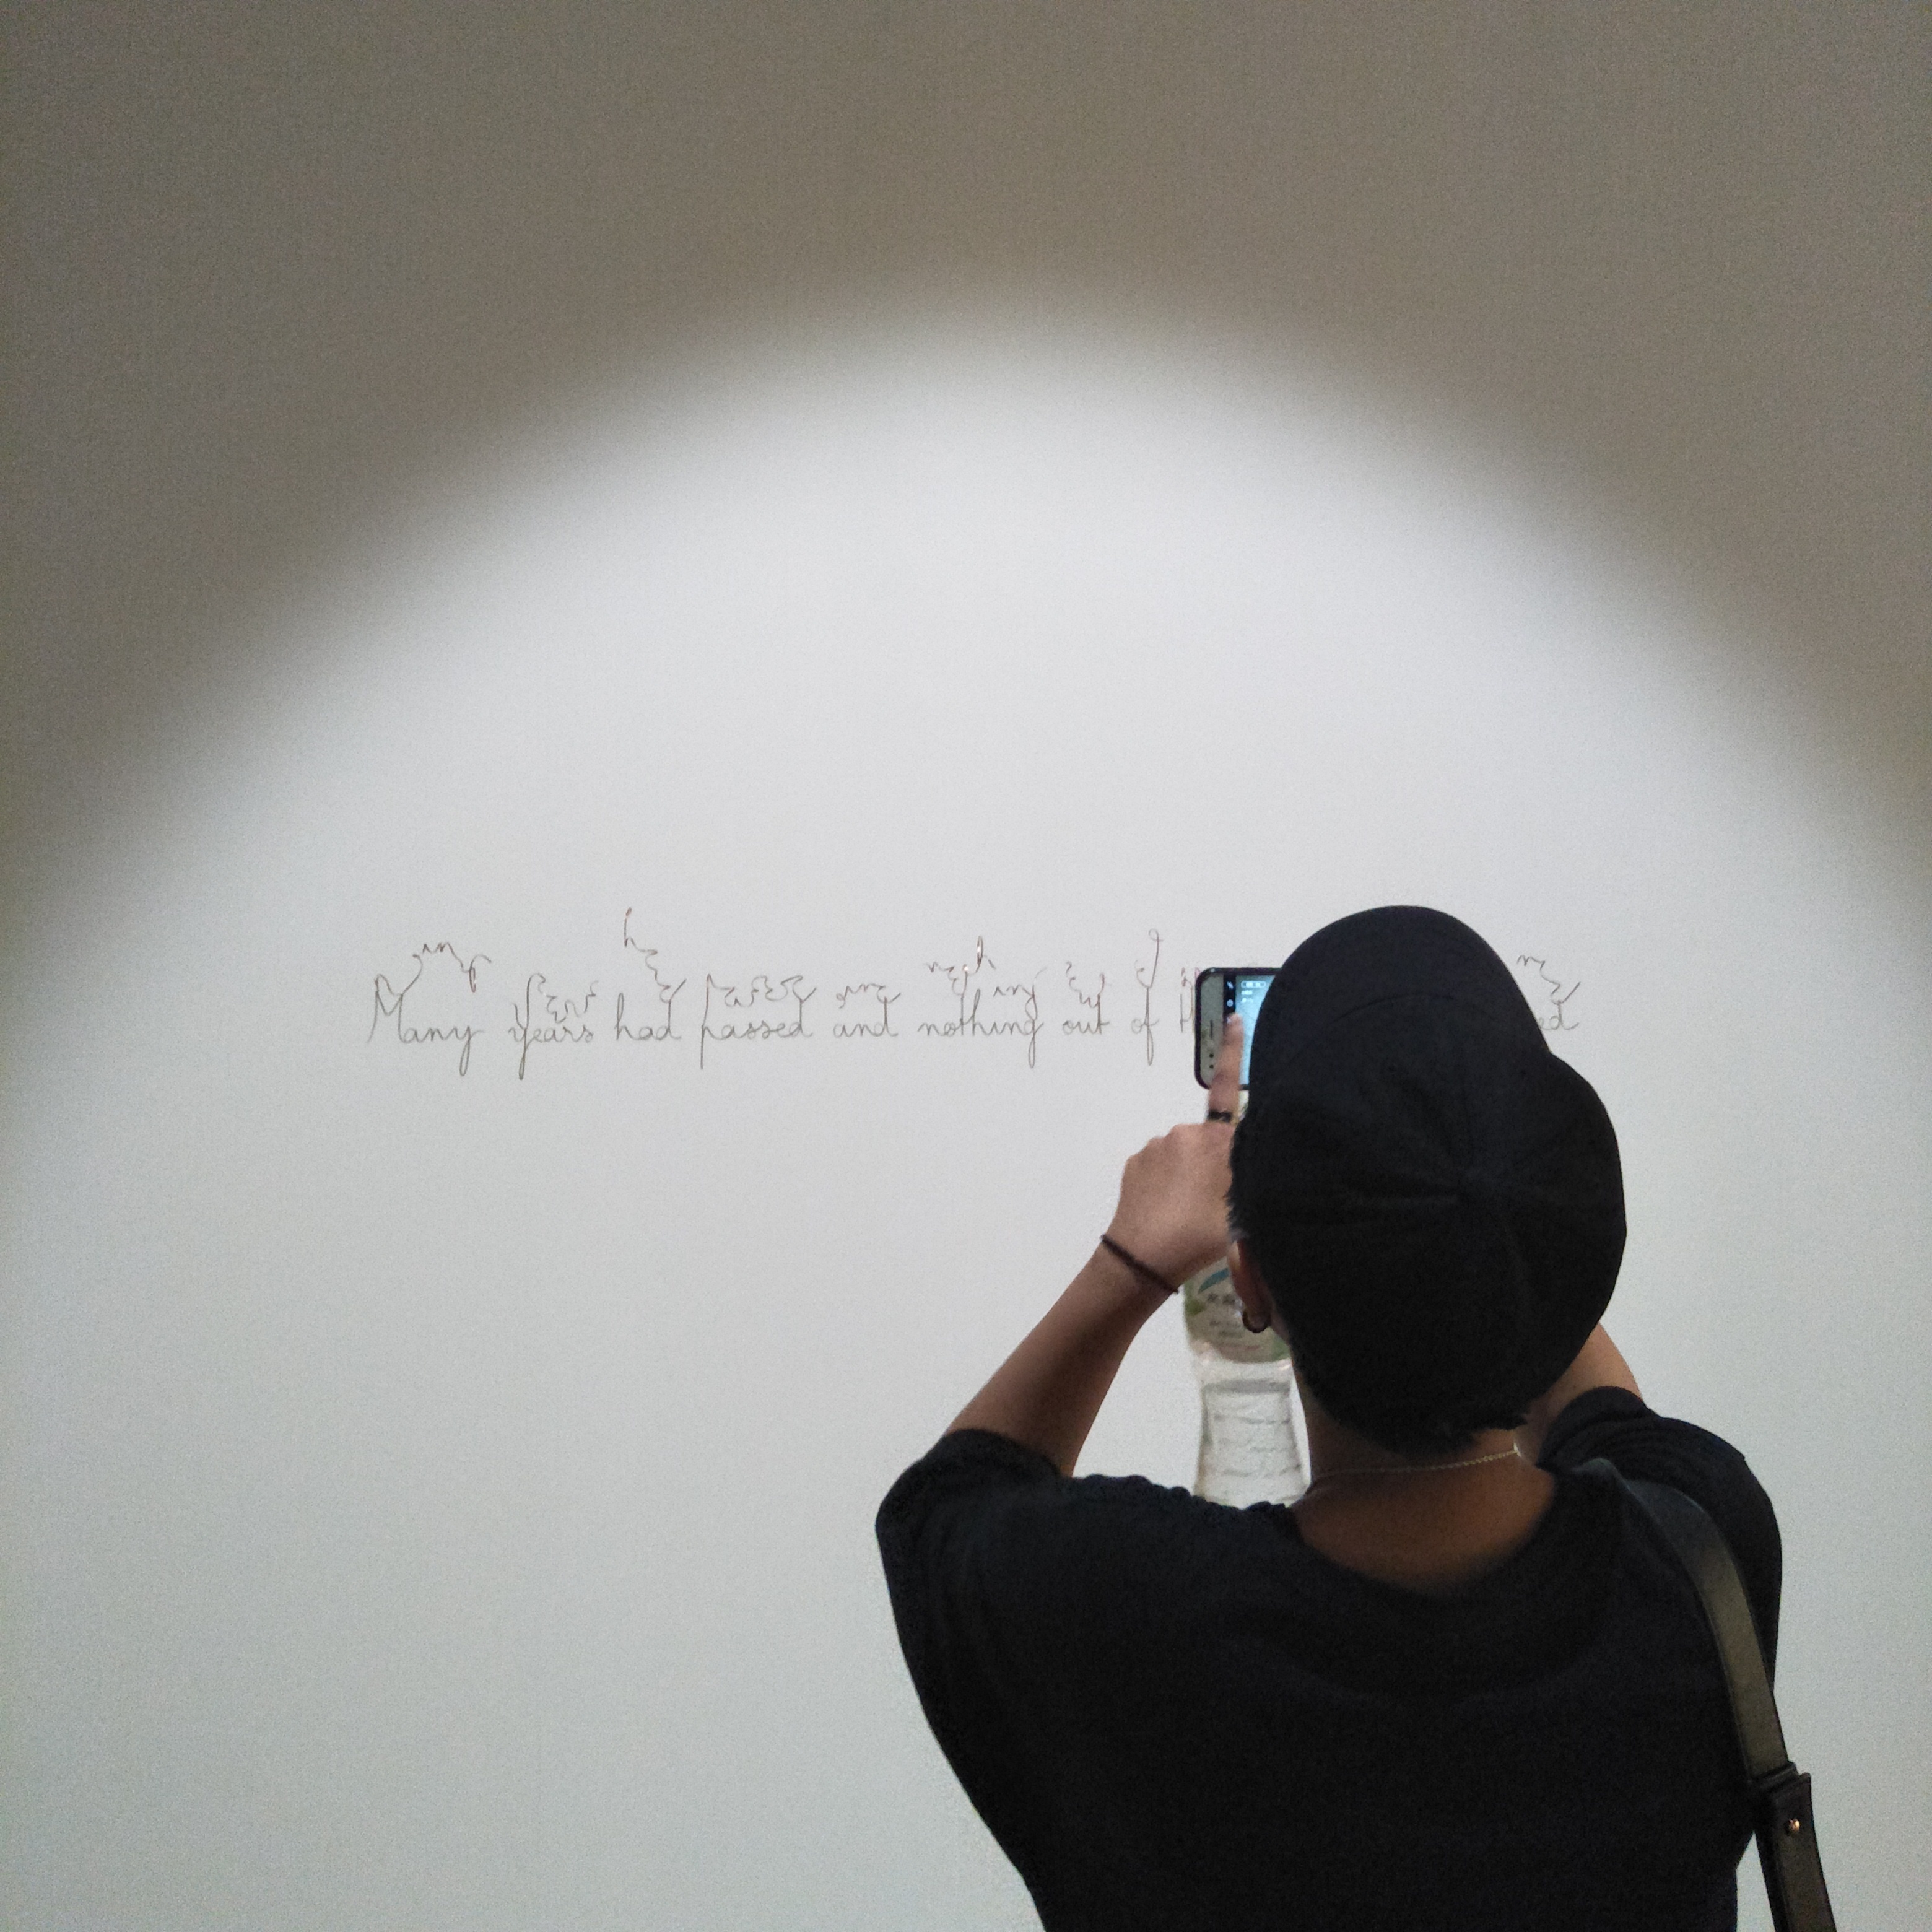 Many years had passed and nothing out of